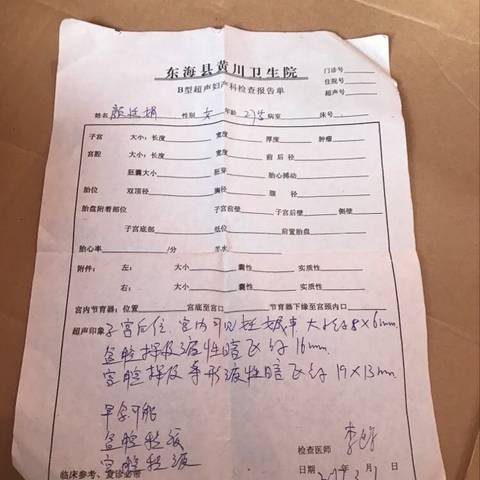 东海县黄川卫生院
门诊号
住院号
超声号
B型超声妇产科检查报告单
姓名 性别 女 年龄 27岁 病室 床号
子宫 大小：长度 宽度 厚度 肿瘤
宫腔 大小：长度 宽度 前后径
胚囊大小 胚芽 胎心搏动
胎位 双顶径 胸径 腹径
胎盘附着部位 子宫前壁 子宫后壁 侧壁
子宫底部 低位 前置胎盘
胎心率 /分 羊水
附件： 左： 大小 囊性 实质性
右： 大小 囊性 实质性
宫内节育器：位置 宫底至宫口 节育器下缘至宫颈内口
超声印象： 子宫后位 宫内可见妊娠 大小约8×6mm
盆腔探及液性暗区约16mm
宫腔探及 液性暗区约19×13mm
早孕可能
盆腔积液
宫腔积液
检查医师
临床参考，复诊必带
日期